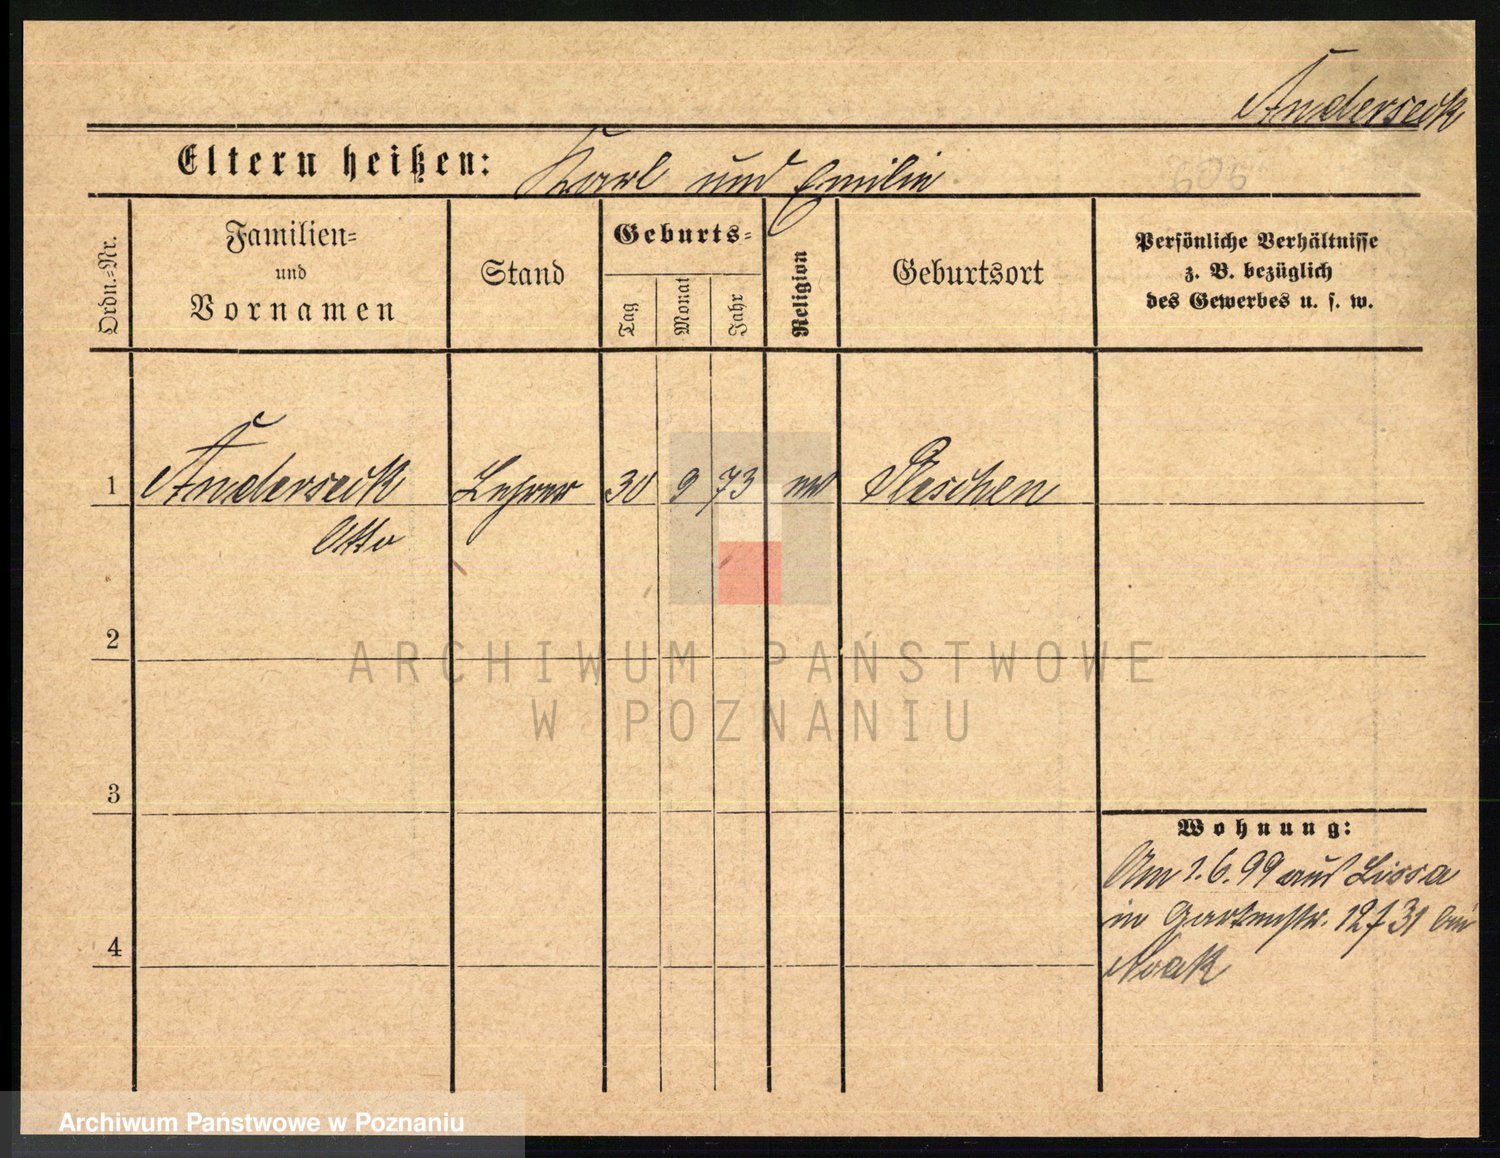 Anderseck
Eltern heißen: Karl und Emilie
606
Ordn.-Nr.
Familien-
und
Vornamen
Stand
Geburts-
Tag
Monat
Jahr
Religion
Geburtsort
Persönliche Verhältnisse
z. B. bezüglich
des Gewerbes u. s. w.
1 Anderseck Lehrer 30 9 73 ev Pleschen
Otto
2
ARCHIWUM PAŃSTWOWE
W POZNANIU
3
Wohnung:
Am 1.6.99 aus Lissa
in Gartenstr. 12 f 31 bei
4
Noak
Archiwum Państwowe w Poznaniu